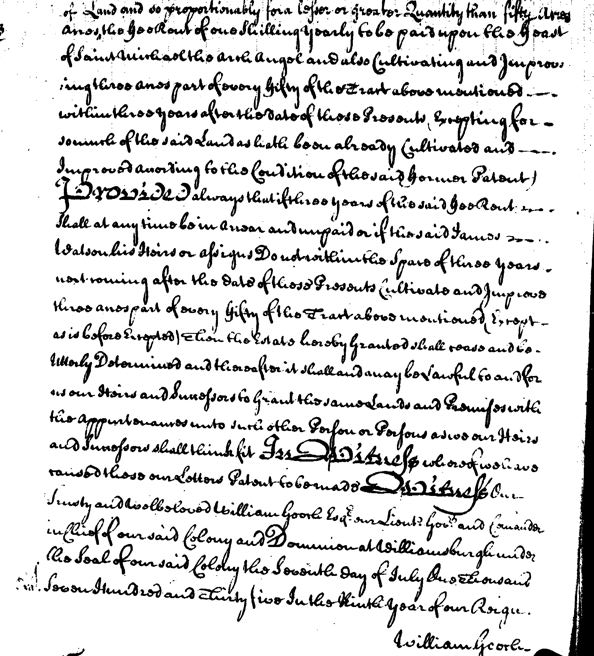 of Land and so proportionably for a lesser or greater Quantity than fifty Acres
acres, the Fee Rent of one Shilling yearly to be paid upon the Feast
of Saint Michael the Arch Angel and also Cultivating and Improv
ing three acres part of every fifty of the Tract above mentioned
within three years after the date of these Presents, Excepting for
so much of the said Land as hath been already Cultivated and
Improved according to the Condition of the said Former Patent)
Provided always that if three years of the said Fee Rent
shall at any time be in Arear and unpaid or if the said James
Watson his Heirs or assigns Do not within the Space of three years
next coming after the date of these Presents Cultivate and Improve
three acres part of every fifty of the Tract above mentioned (Except
as is before Excepted) Then the Estate hereby Granted shall cease and be
Utterly Determined and thereafter it shall and may be Lawful to and for
us our Heirs and Successors to Grant the same Lands and Premises with
the Appurtenances unto such other Person or Persons as we our Heirs
and Successors shall think fit In Witness whereof we have
caused these our Letters Patent to be made Witness Our
Trusty and Welbeloved William Gooch Esqr. our Lieut. Govr. and Comander
in Chief of our said Colony and Dominion at Williamsburgh under
the Seal of our said Colony the Seventh day of July One Thousand
Seven Hundred and Thirty five In the Ninth Year of our Reign.
William Gooch